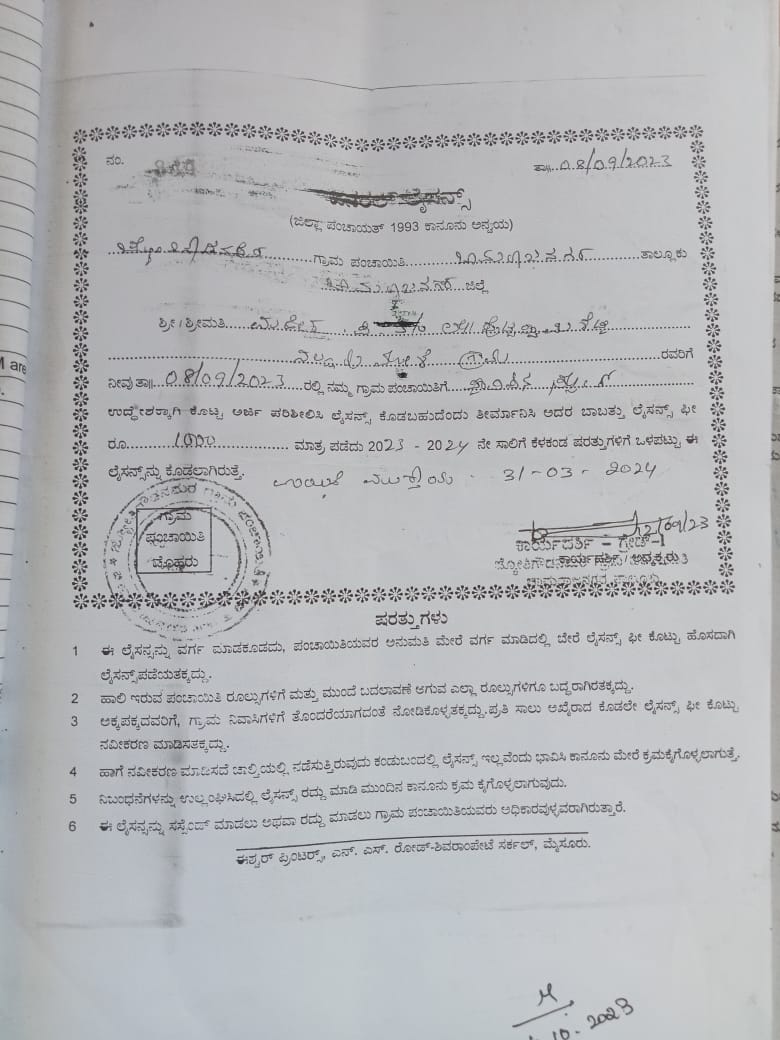 ನಂ.
ತಾ॥. 08/09/2023
ಜನರಲ್ ಲೈಸನ್ಸ್
(ಜಿಲ್ಲಾ ಪಂಚಾಯತ್ 1993 ಕಾನೂನು ಅನ್ವಯ)
ಗ್ರಾಮ ಪಂಚಾಯಿತಿ ಚಾಮರಾಜನಗರ ತಾಲ್ಲೂಕು
ಚಾಮರಾಜನಗರ ಜಿಲ್ಲೆ
ಶ್ರೀ/ಶ್ರೀಮತಿ
ರವರಿಗೆ
ನೀವು ತಾ॥. 08/09/2023 ರಲ್ಲಿ ನಮ್ಮ ಗ್ರಾಮ ಪಂಚಾಯಿತಿಗೆ
ಉದ್ದೇಶಕ್ಕಾಗಿ ಕೊಟ್ಟ ಅರ್ಜಿ ಪರಿಶೀಲಿಸಿ ಲೈಸನ್ಸ್ ಕೊಡಬಹುದೆಂದು ತೀರ್ಮಾನಿಸಿ ಅದರ ಬಾಬತ್ತು ಲೈಸನ್ಸ್ ಫೀ
ರೂ. 1000 ಮಾತ್ರ ಪಡೆದು 2023 - 2024 ನೇ ಸಾಲಿಗೆ ಕೆಳಕಂಡ ಷರತ್ತುಗಳಿಗೆ ಒಳಪಟ್ಟು ಈ
ಲೈಸೆನ್ಸ್‌ನ್ನು ಕೊಡಲಾಗಿರುತ್ತೆ.
ಮುಕ್ತಾಯ 31-03-2024
ಗ್ರಾಮ
ಪಂಚಾಯಿತಿ
ಮೊಹರು
12/09/23
ಕಾರ್ಯದರ್ಶಿ - ಗ್ರೇಡ್-1
ಕಾರ್ಯದರ್ಶಿ / ಅಧ್ಯಕ್ಷರು
ಚಾಮರಾಜನಗರ ತಾಲ್ಲೂಕು
ಷರತ್ತುಗಳು
1 ಈ ಲೈಸನ್ಸನ್ನು ವರ್ಗ ಮಾಡಕೂಡದು, ಪಂಚಾಯಿತಿಯವರ ಅನುಮತಿ ಮೇರೆ ವರ್ಗ ಮಾಡಿದಲ್ಲಿ ಬೇರೆ ಲೈಸನ್ಸ್ ಫೀ ಕೊಟ್ಟು ಹೊಸದಾಗಿ
ಲೈಸೆನ್ಸ್‌ಪಡೆಯತಕ್ಕದ್ದು.
2 ಹಾಲಿ ಇರುವ ಪಂಚಾಯಿತಿ ರೂಲ್ಸುಗಳಿಗೆ ಮತ್ತು ಮುಂದೆ ಬದಲಾವಣೆ ಆಗುವ ಎಲ್ಲಾ ರೂಲ್ಸುಗಳಿಗೂ ಬದ್ದರಾಗಿರತಕ್ಕದ್ದು.
3 ಅಕ್ಕಪಕ್ಕದವರಿಗೆ, ಗ್ರಾಮ ನಿವಾಸಿಗಳಿಗೆ ತೊಂದರೆಯಾಗದಂತೆ ನೋಡಿಕೊಳ್ಳತಕ್ಕದ್ದು.ಪ್ರತಿ ಸಾಲು ಅಖೈರಾದ ಕೂಡಲೇ ಲೈಸನ್ಸ್ ಫೀ ಕೊಟ್ಟು
ನವೀಕರಣ ಮಾಡಿಸತಕ್ಕದ್ದು.
4 ಹಾಗೆ ನವೀಕರಣ ಮಾಡಿಸದೆ ಚಾಲ್ತಿಯಲ್ಲಿ ನಡೆಸುತ್ತಿರುವುದು ಕಂಡುಬಂದಲ್ಲಿ ಲೈಸನ್ಸ್ ಇಲ್ಲವೆಂದು ಭಾವಿಸಿ ಕಾನೂನು ಮೇರೆ ಕ್ರಮಕೈಗೊಳ್ಳಲಾಗುತ್ತೆ.
5 ನಿಬಂಧನೆಗಳನ್ನು ಉಲ್ಲಂಘಿಸಿದಲ್ಲಿ ಲೈಸನ್ಸ್ ರದ್ದು ಮಾಡಿ ಮುಂದಿನ ಕಾನೂನು ಕ್ರಮ ಕೈಗೊಳ್ಳಲಾಗುವುದು.
6 ಈ ಲೈಸನ್ಸನ್ನು ಸಸ್ಪೆಂಡ್ ಮಾಡಲು ಅಥವಾ ರದ್ದು ಮಾಡಲು ಗ್ರಾಮ ಪಂಚಾಯಿತಿಯವರು ಅಧಿಕಾರವುಳ್ಳವರಾಗಿರುತ್ತಾರೆ.
ಈಶ್ವರ್ ಪ್ರಿಂಟರ್ಸ್, ಎನ್. ಎಸ್. ರೋಡ್-ಶಿವರಾಂಪೇಟೆ ಸರ್ಕಲ್, ಮೈಸೂರು.
10.2023